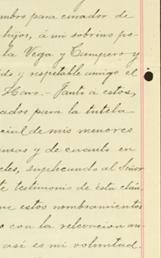 mbro para curador de
hijos, á mi sobrino
la Vega y Campero y
do y respetable amigo el
Hno.- Tanto á estos,
ados para la tutela
cial de mis menores
mas y de cuanto en
des, suplicando al Señor
te testimonio de ésta
ue estos nombramientos
o con la relevacion
así es mi voluntad.